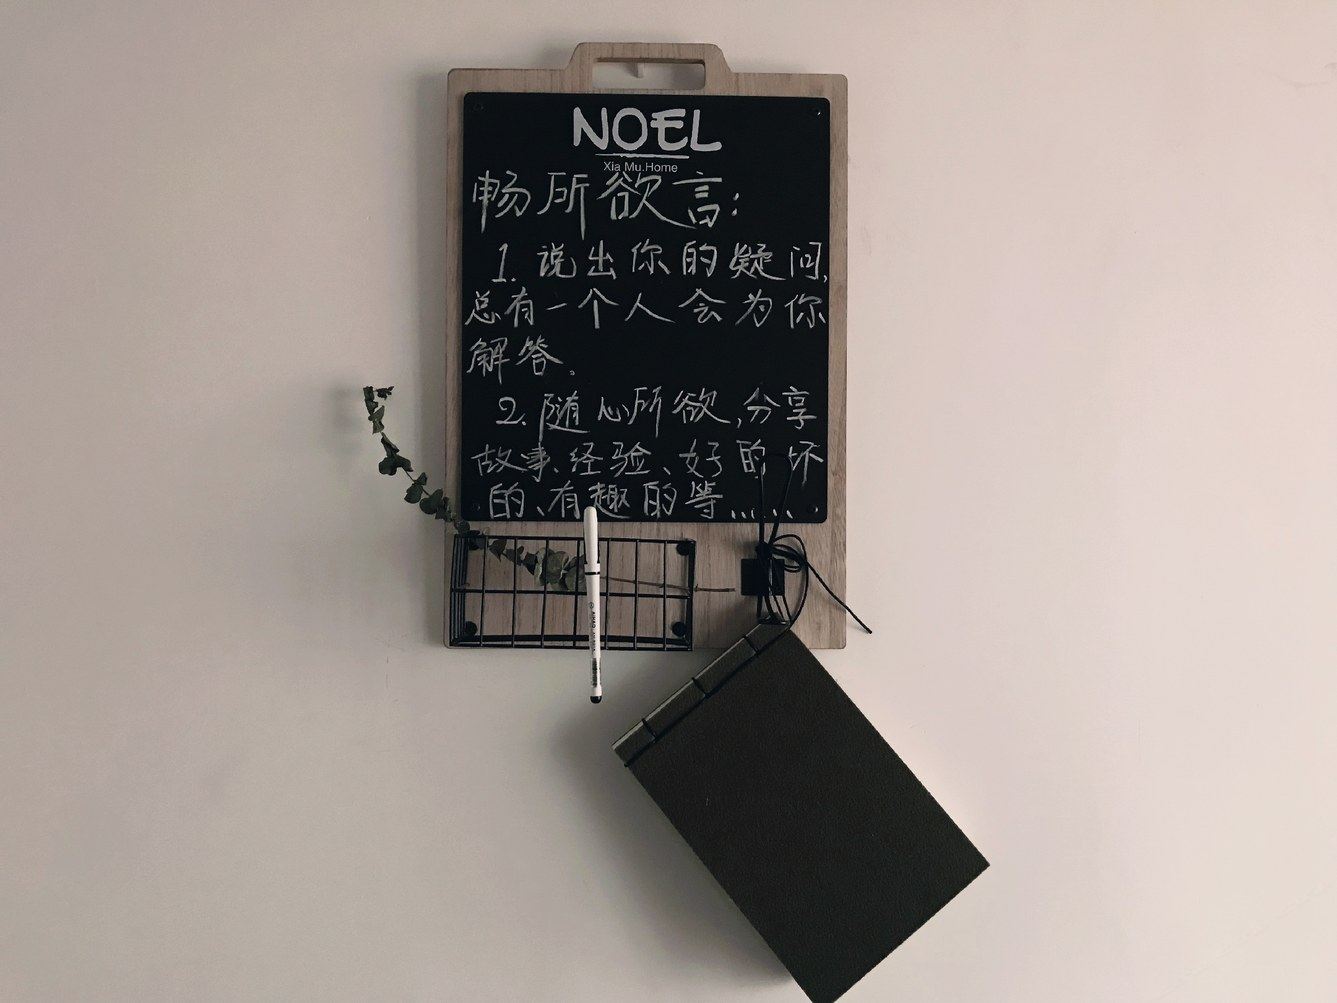 NOEL
Xia Mu.Home
畅所欲言:
1. 说出你的疑问,
总有一个人会为你
解答。
2. 随心所欲,分享
故事、经验、好的坏
的、有趣的等......